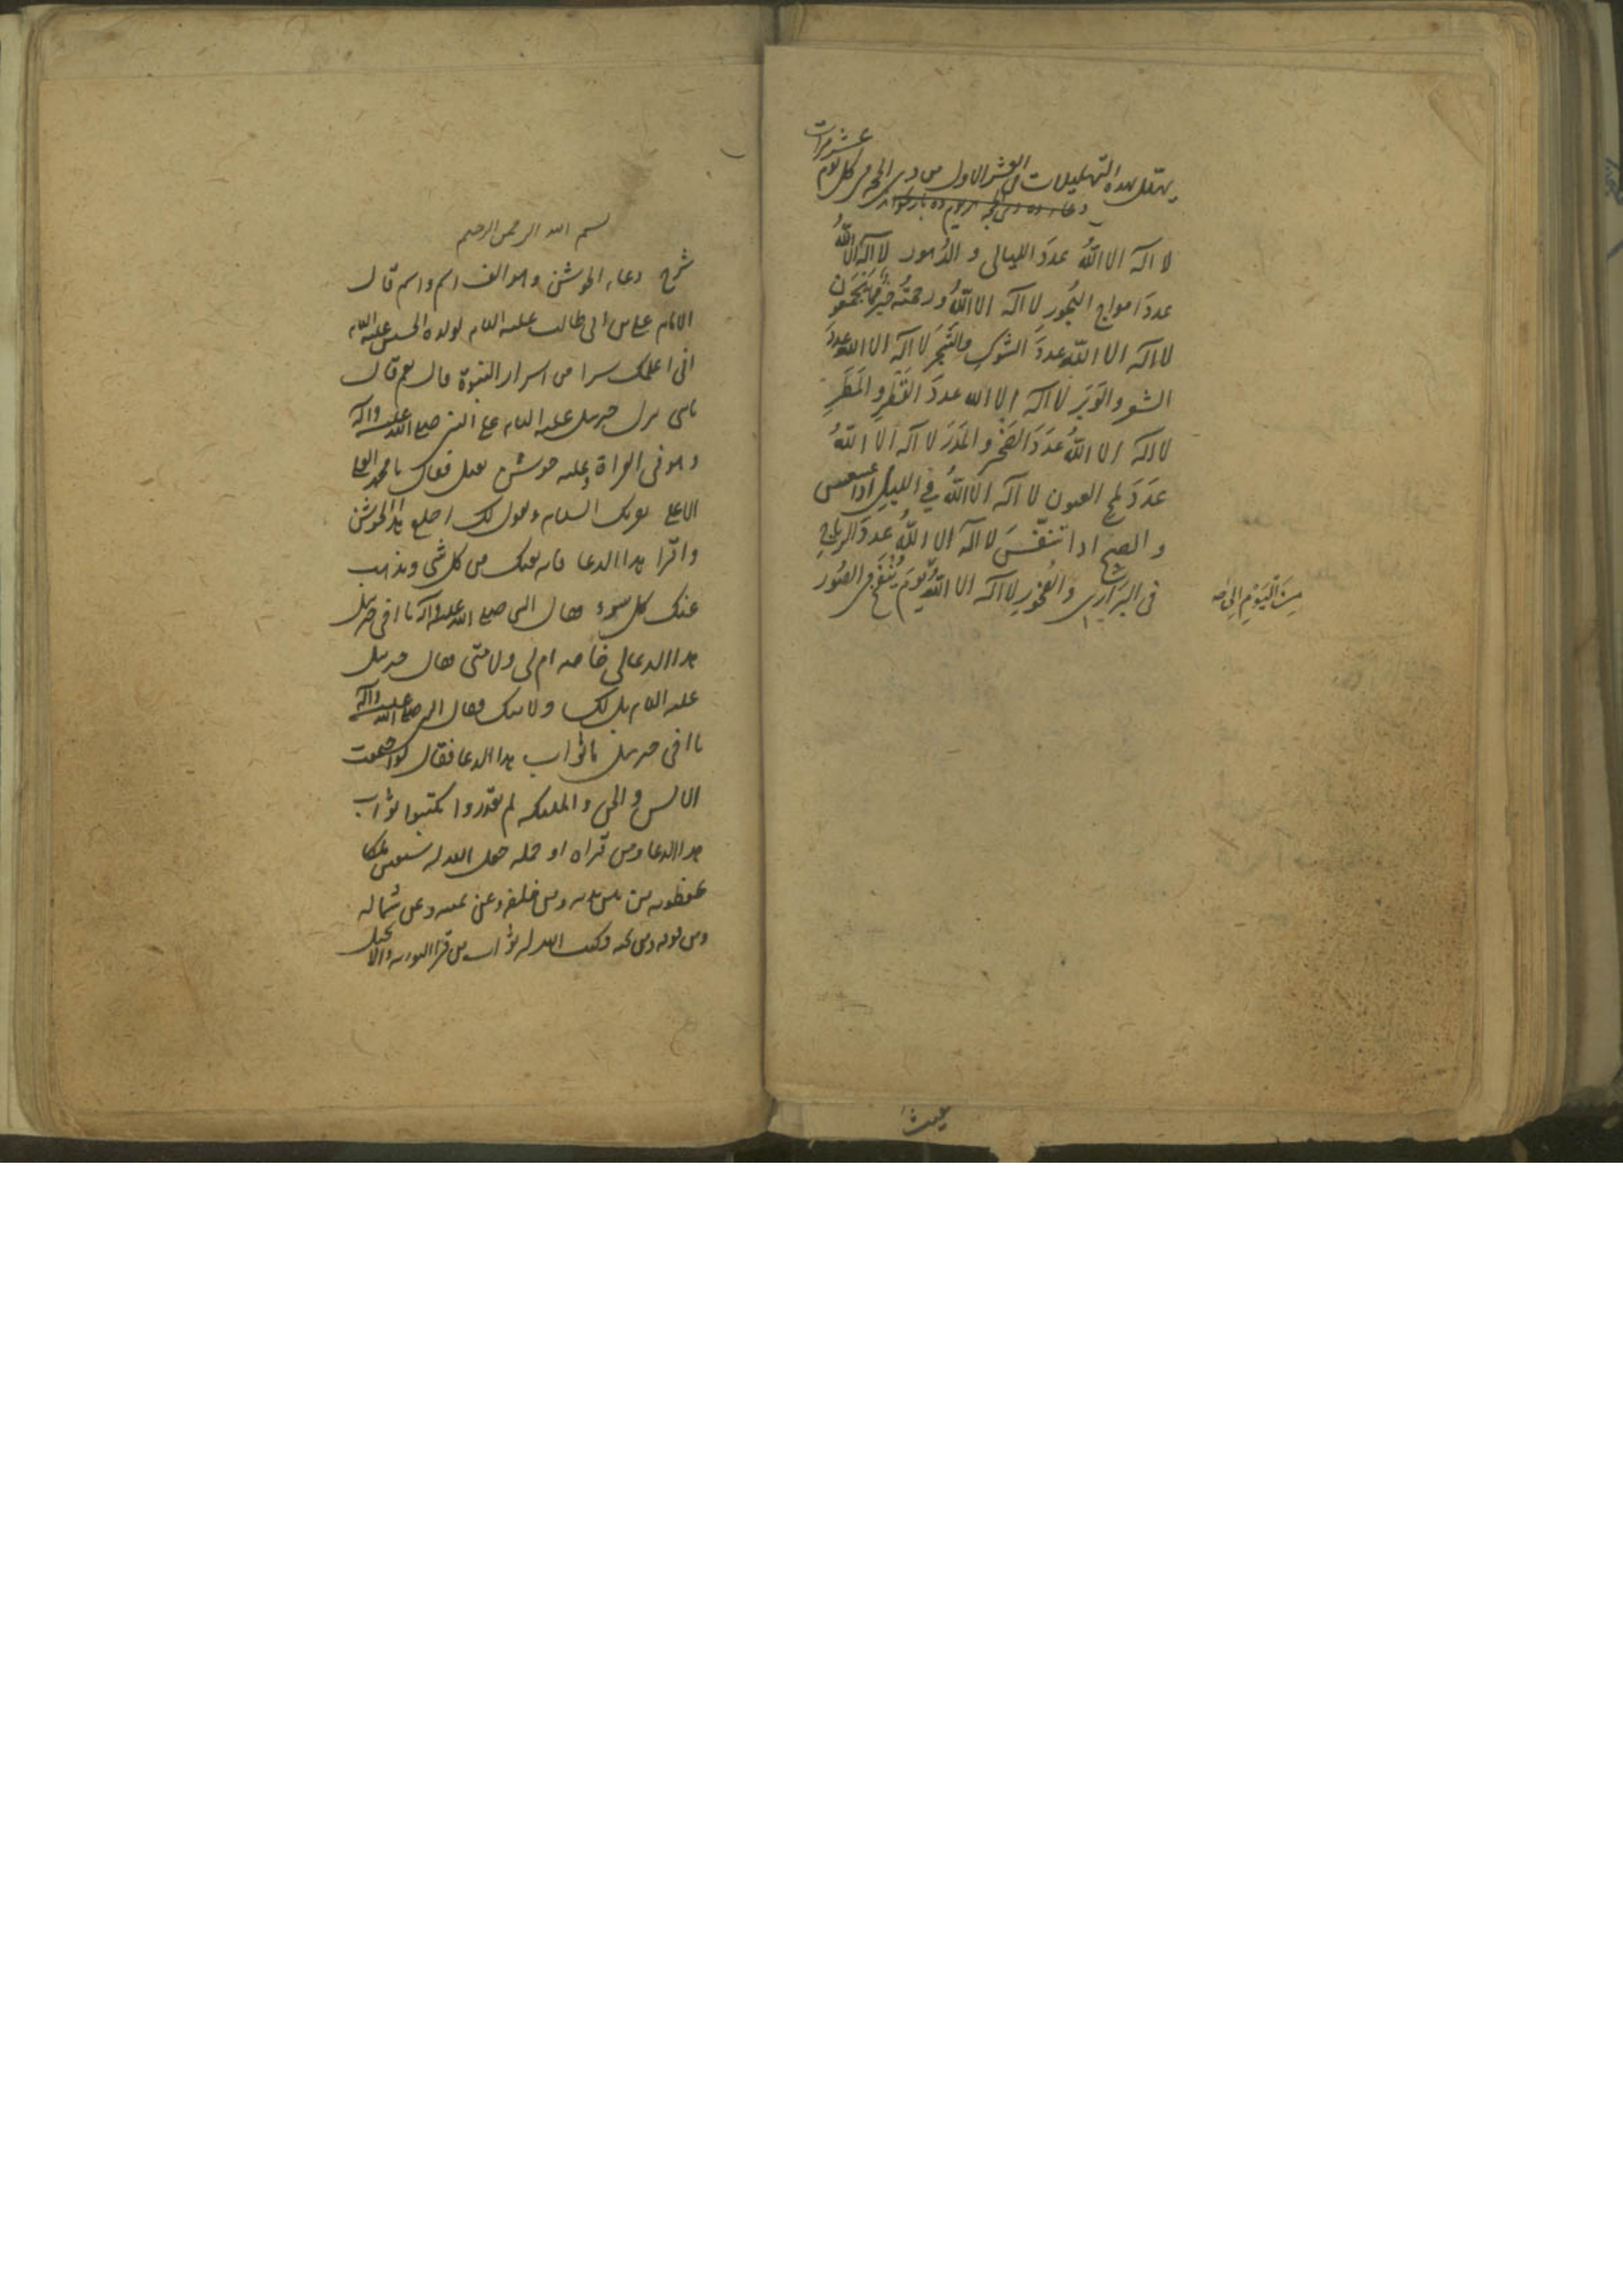 يهلل بهذه التهليلات في العشر الاول من ذى الحجه في كل يوم عشر مرات
لا اله الا اللهُ عددَ الليالى و الدُهور لا اله الا اللهُ
عددَ امواج البُحورِ لا اله الا اللهُ و رحمتُه خيرٌ مما يَجمَعون
لا اله الا اللهُ عددَ الشوكِ والشَجَرِ لا اله الا الله عددَ
الشعر والوَبَرِ لا اله الا الله عددَ القَطْرِ و المَطَرِ
لا اله الا اللهُ عَدَدَ الصَخْرِ و المَدَرَ لا اله الا اللهُ
عَدَدَ لمح العيون لا اله الا اللهُ في الليلِ اذا عسعس
و الصبح اذا تنفّسَ لا اله الا اللهُ عددَ الرياحِ
فى البَرَارِى و الصُخورِ لا اله الا اللهُ يومَ يُنْفَخُ فى الصُور
مِنَ الْيَوْمِ اِلى
عيث
بسم الله الرحمن الرحيم
شرح دعاء الجوشن وهو الف اسم و اسم قال
الامام على بن أبى طالب عليه السلام لولده الحسين عليه السلام
انى اعلمك سرا من اسرار النبوة قال نعم قال
يابنى نزل جبريل عليه السلام على النبى صلى الله عليه وآله
وهو فى الغزاة وعليه جوشن ثقيل فقال يا محمد العلى
الاعلى يقرئك السلام و يقول لك اخلع هذا الجوشن
واقرا هذا الدعا فانه يمنعك من كل شى ويذهب
عنك كل سوء فقال النبى صلى الله عليه وآله يا اخى جبريل
هذا الدعا لى خاصه ام لى ولامتى فقال جبريل
عليه السلام بل لك ولامتك فقال النبى صلى الله عليه وآله
يا اخى جبريل ما ثواب هذا الدعا فقال لو اجتمعت
الانس و الجن و الملئكه لم يقدروا يكتبوا ثواب
هذا الدعا ومن قراه او حمله جعل الله له سبعين ملكا
يحفظونه من بين يديه ومن خلفه وعن يمينه وعن شماله
ومن فوقه ومن تحته وكتب الله له ثواب من قرا التوريه والانجيل